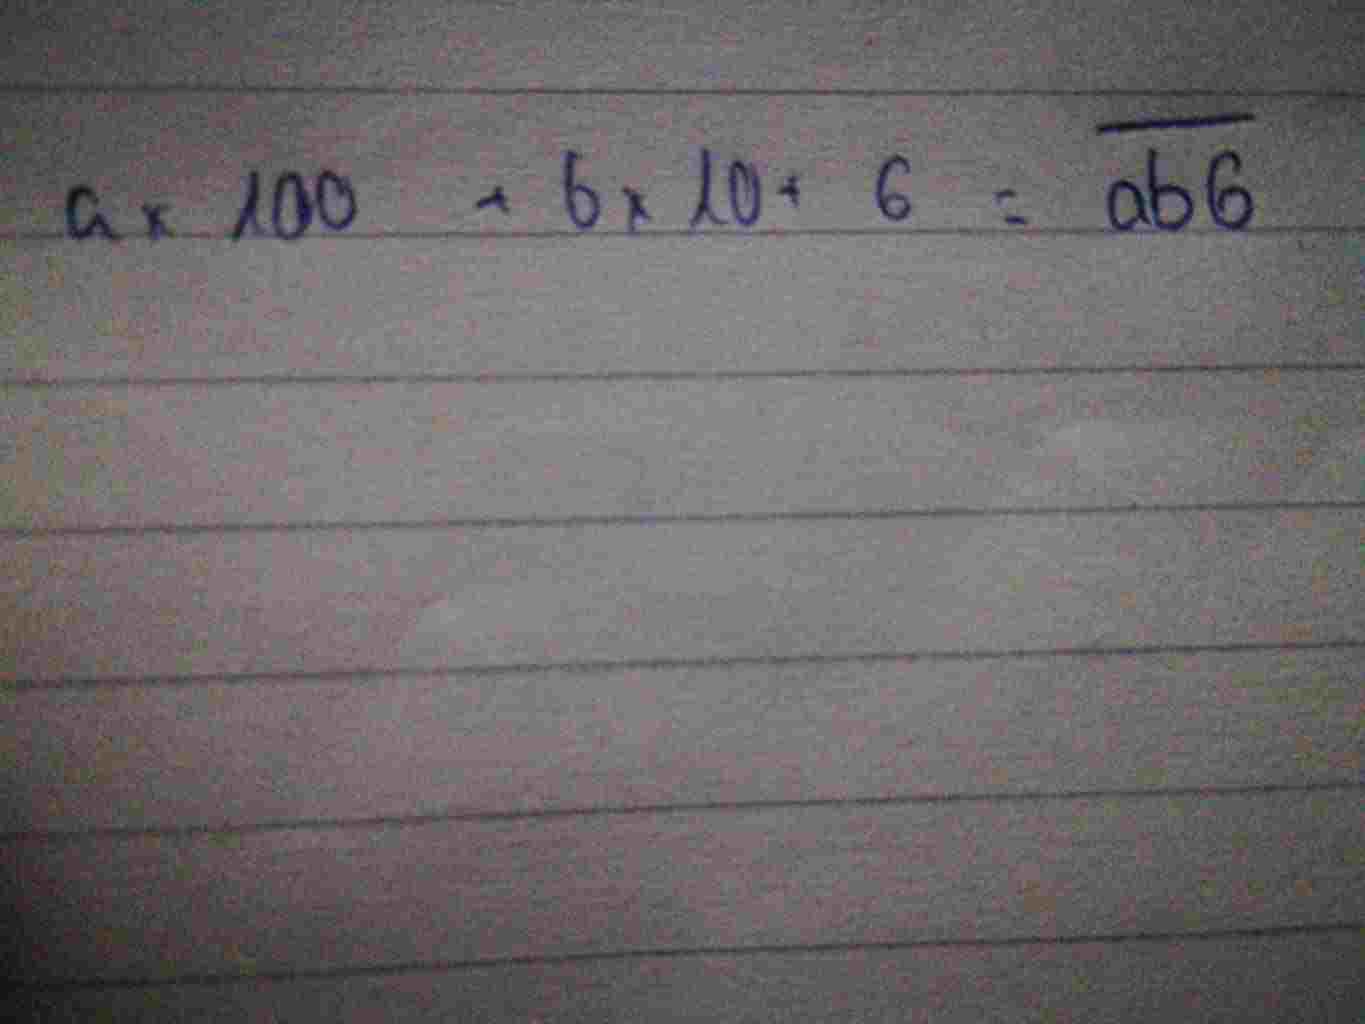 a x 100 + b x 10 + 6 = \overline{ab6}